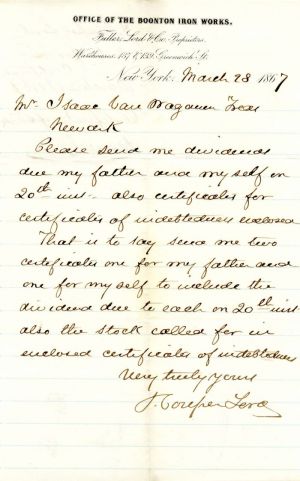 OFFICE OF THE BOONTON IRON WORKS.
Fuller, Lord & Co. Proprietors,
Warehouses, 137 & 139 Greenwich St.
New York, March 28 1867
Mr. Isaac Van Wagenen Treas
Newark
Please send me dividends
due my father and my self on
20th inst- also certificates for
certificates of indebtedness enclosed
That is to say send me two
certificates one for my father and
one for my self to include the
dividend due to each on 20th inst
also the stock called for in
enclosed certificates of indebtedness
Very truly yours
J. Couper Lord